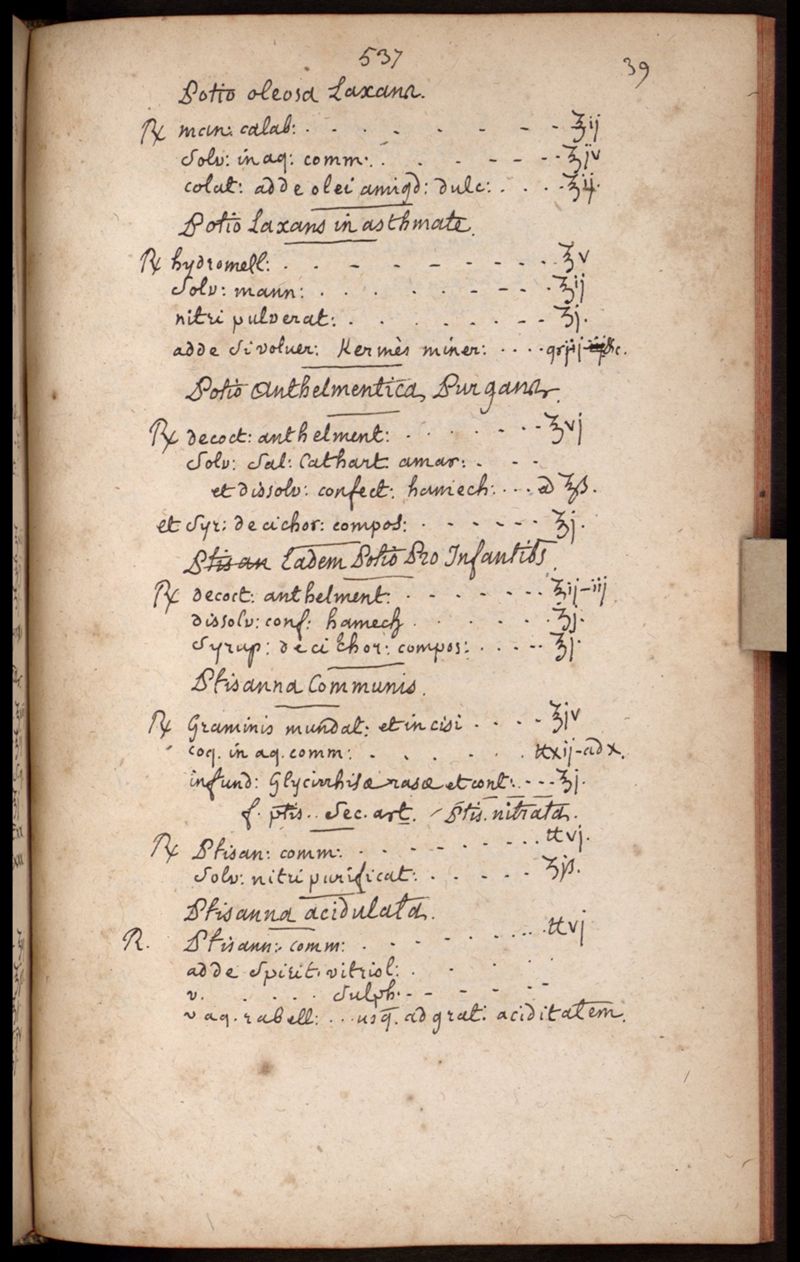 537
39
Potio oleosa Laxans.
℞ man: calab: . - - . . - - - - ℥ij
Solv: in aq: comm: . . . - - - - ℥iv
colat: adde olei amigd: dulc: . . . . ℥ij.
Potio Laxans in asthmate.
℞ hydromell: . . - - - - - - . . ℥v
Solv: mann: . . . . . . - - - . ℥ij
nitri pulverat: . . . . . . . - - ʒj.
adde si voluer: Kermès miner: . . . .
Potio Anthelmentica, Purgans.
℞ decoct: anthelment: . . . . - . . - ℥vj
Solv: Sal: Cathart: amar: . - -
et dissolv: confect: hamech: . . . a̅ ʒß.
et Syr: de cichor: compos: . - - - - - - ℥j.
Ptisan Eadem Potio Pro Infantibs.
℞ decoct: anthelment: . - - - - . . - ℥ij-iij
dissolv: conf: hamech . . . . . . ʒj.
Syrup: de cichor: compos: . . . . - - ℥j.
Ptisanna Communis.
℞ Graminis mundat: et incisi . . . . - ℥iv
coq. in aq. comm: . . . . - . . ℔xij-ad x.
infund: Glycirrhisæ rasæ et cont: . - - - ℥j.
f. ptis. . Sec. art. / Ptis. nitrata.
℞ Ptisan: comm: . - - - - - . . . ℔vj.
Solv: nitri purificat: . . - - - - ʒjß.
Ptisanna acidulata.
R. Ptisann: comm: . . - - . - . . . . . ℔vj
adde Spirit. vitriol: . . - . .
v. . . . . Sulph. - - - - - - -
v aq. rabell: . . . usq. ad grat: aciditatem.